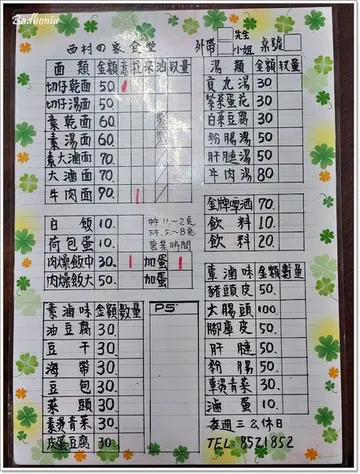 Badboniu
西村の家食堂
外帶 先生 小姐 桌號
面類 金額 意 粄 米 油 数量
切仔乾面 50.
切仔湯面 50.
素乾面 60.
素湯面 60.
素大滷面 70.
大滷面 70.
牛肉面 90.
白飯 10
荷包蛋 10.
肉燥飯中 30 加蛋
肉燥飯大 50. 加蛋
中午11~2免
下午5~8免
營業時間
素滷味 金額 數量
油豆腐 30.
豆干 30.
海帶 30.
豆包 30.
菜頭 30.
素燙青菜 30.
皮蛋豆腐 30.
PS
湯類 金額 数量
貢丸湯 30
紫菜蛋花 30.
白菜豆腐 30.
粉腸湯 50.
肝腱湯 50.
牛肉湯 80
金牌啤酒 70.
飲料 10.
飲料 20.
葷滷味 金額 數量
豬頭皮 50.
大腸頭 100.
腳庫皮 50.
肝腱 50.
粉腸 50.
葷燙青菜 30.
滷蛋 10.
每週三公休日
TEL: 8521852